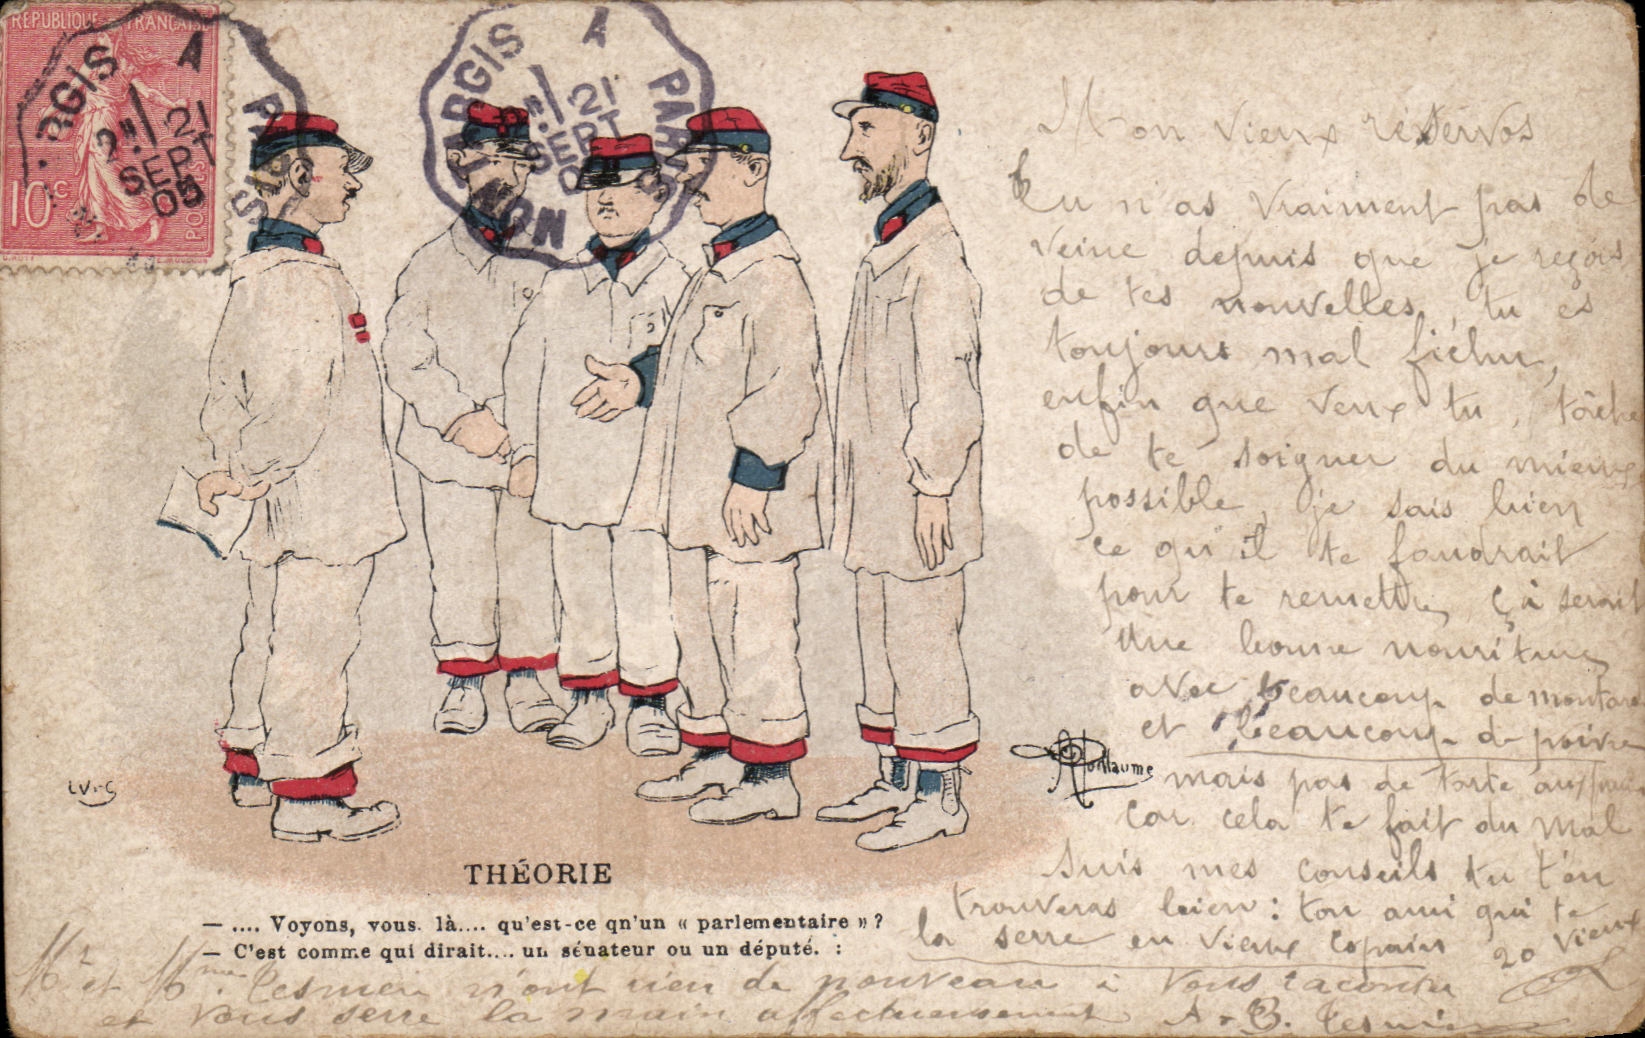 RÉPUBLIQUE FRANÇAISE
10c
POSTES
MONTARGIS A PARIS
21
SEPT
05
MONTARGIS A PARIS
21
SEPT
Mon Vieux réservos
Tu n'as Vraiment pas de
veine depuis que je reçois
de tes nouvelles, tu es
toujours mal fichu,
enfin que Veux tu, tâche
de te soigner du mieux
possible, je sais bien
ce qu'il te faudrait
pour te remettre, çà serait
Une bonne nourriture
avec beaucoup de moutarde
et beaucoup de poivre
mais pas de tarte aux
car cela te fait du mal
Suis mes conseils tu t'en
trouveras bien : ton ami qui te
la serre en Vieux Copain 20 Vieux
A Guillaume
LV & C
THÉORIE
— .... Voyons, vous. là.... qu'est-ce qn'un « parlementaire » ?
— C'est comme qui dirait.... un sénateur ou un député. :
Mr et Mme Tesnier n'ont rien de nouveau à Vous raconter
et Vous serre la main affectueusement A. B. Tesnier